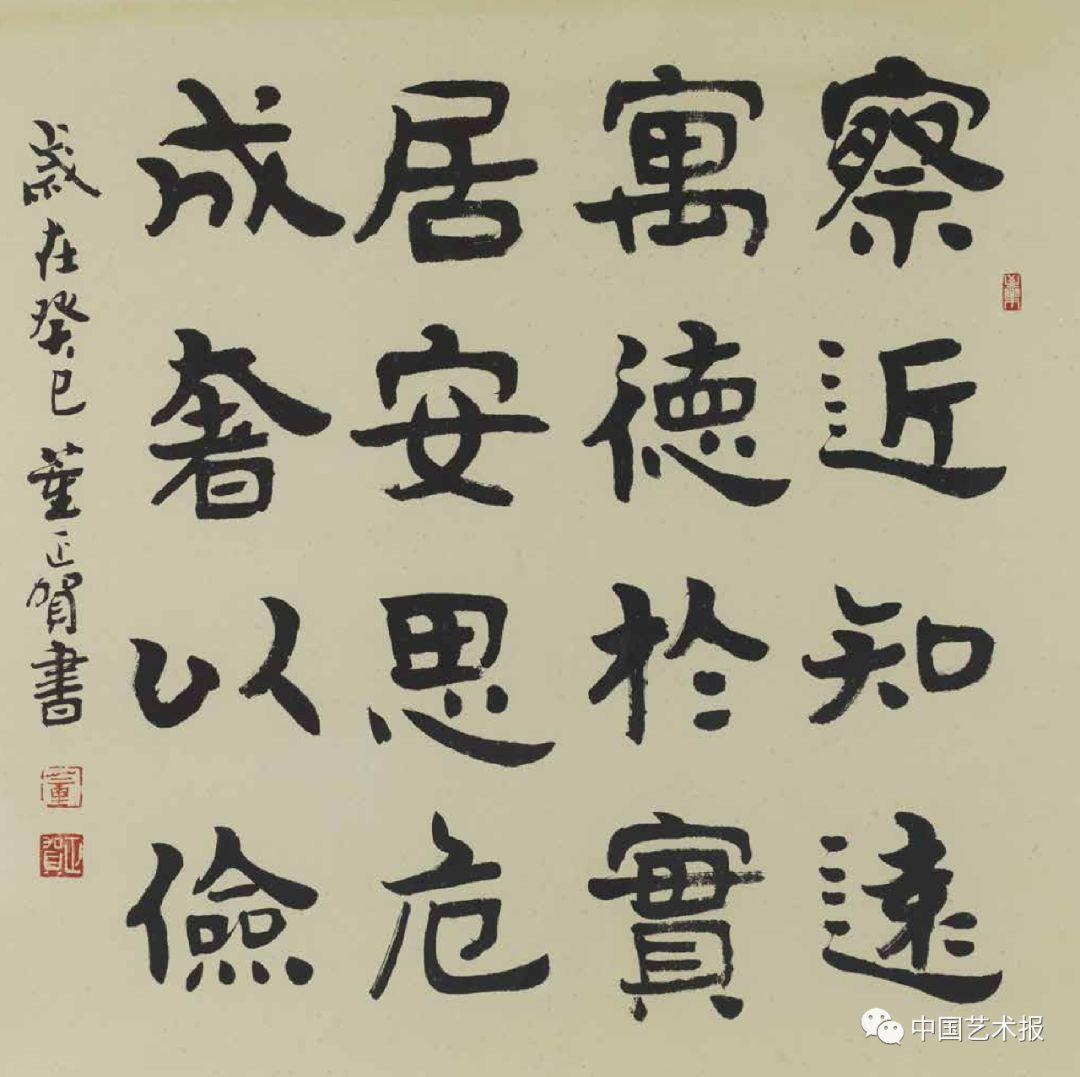 察近知遠
寓德於實
居安思危
戒奢以儉
歲在癸巳 董正賀書
董
正賀
中国艺术报